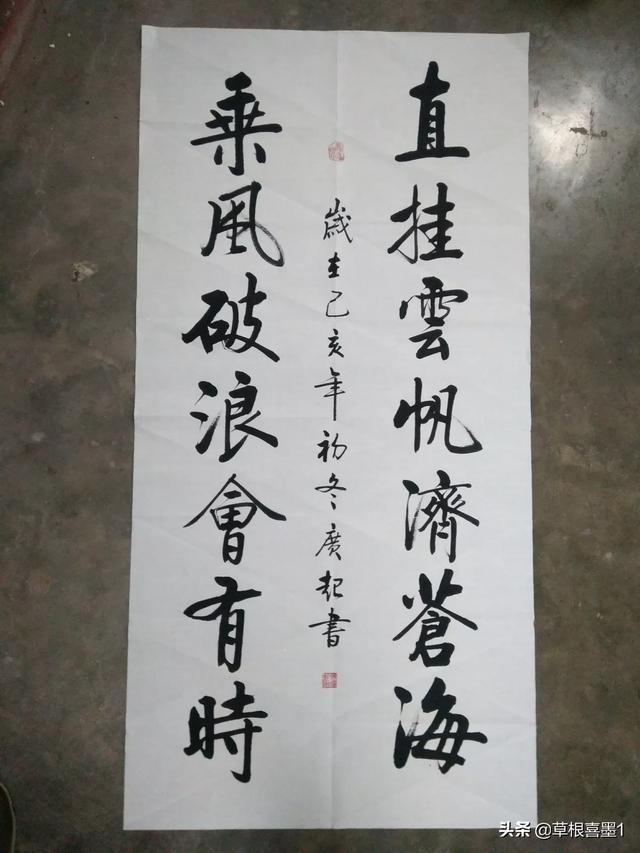 直挂雲帆濟蒼海
歲在己亥年初冬廣起書
乘風破浪會有時
头条@草根喜墨1